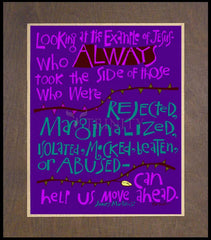 Looking at the Example of Jesus
Who ALWAYS
took the Side of those
Who Were
REJECTED,
Marginalized,
ISOLATED, MOCKED, BEATEN,
or ABUSED—
can
help us move ahead.